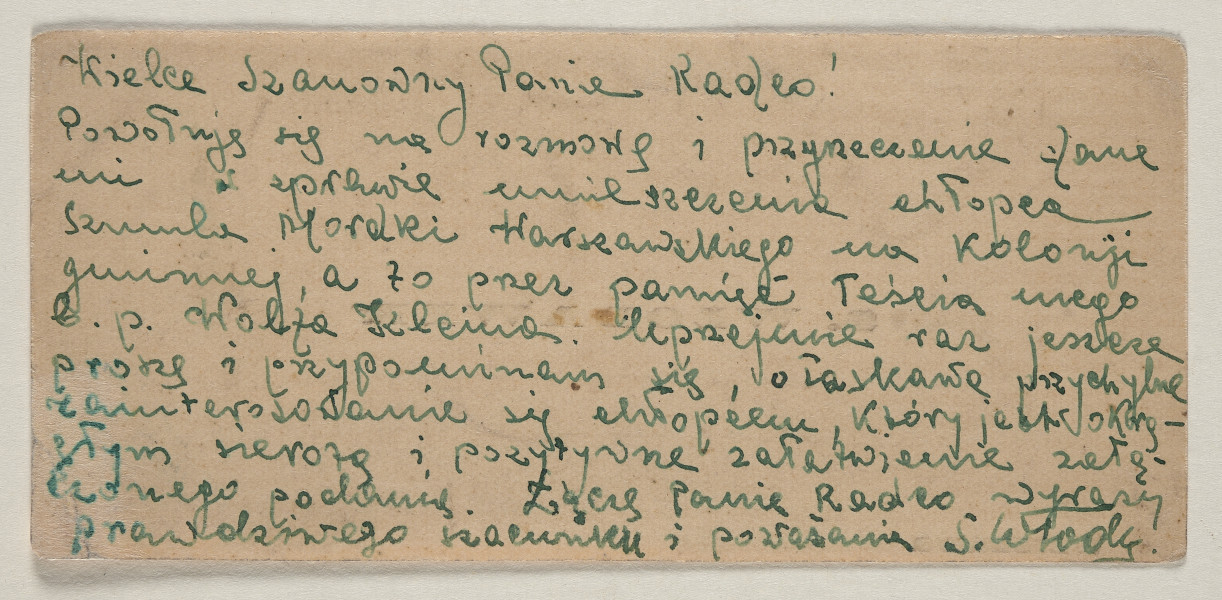 Wielce Szanowny Panie Radco!
Powołuję się na rozmowę i przyrzeczenie dane
mi w sprawie umieszczenia chłopca
Szmula Mordki Warszawskiego na Kolonji
gminnej, a to przez pamięć Teścia mego
b. p. Wolfa Kleina. Uprzejmie raz jeszcze
proszę i przypominam się, o łaskawe przychylne
zainteresowanie się chłopcem, który jest okrą-
głym sierotą i pozytywne załatwienie załą-
czonego podania. Łączę Panie Radco wyrazy
prawdziwego szacunku i poważania S.